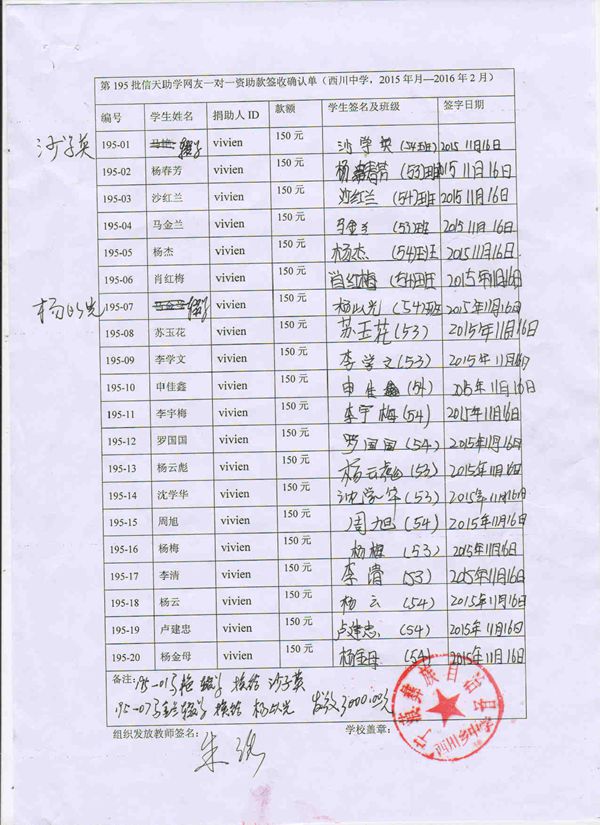 第195批信天助学网友一对一资助款签收确认单（西川中学，2015年月—2016年2月）
编号 学生姓名 捐助人ID 款额 学生签名及班级 签字日期
沙子英 195-01 辍学 vivien 150元 沙学英（54班） 2015 11月16日
195-02 杨春芳 vivien 150元 杨春芳（53)班 2015 11月16日
195-03 沙红兰 vivien 150元 沙红兰（54)班 2015 11月16日
195-04 马金兰 vivien 150元 马金兰（53)班 2015 11月16日
195-05 杨杰 vivien 150元 杨杰（54)班 2015 11月16日
195-06 肖红梅 vivien 150元 肖红梅（54)班 2015年11月16日
杨以光 195-07 辍学 vivien 150元 杨以光（54)班 2015年11月16日
195-08 苏玉花 vivien 150元 苏玉花（53） 2015年11月16日
195-09 李学文 vivien 150元 李学文（53） 2015年11月16日
195-10 申佳鑫 vivien 150元 申佳鑫（54） 2015年11月16日
195-11 李宇梅 vivien 150元 李宇梅（54） 2015年11月16日
195-12 罗国国 vivien 150元 罗国国（54） 2015年11月16日
195-13 杨云彪 vivien 150元 杨云彪（53） 2015年11月16日
195-14 沈学华 vivien 150元 沈学华（53） 2015年11月16日
195-15 周旭 vivien 150元 周旭（54） 2015年11月16日
195-16 杨梅 vivien 150元 杨梅（53） 2015年11月16日
195-17 李清 vivien 150元 李清（53） 2015年11月16日
195-18 杨云 vivien 150元 杨云（54） 2015年11月16日
195-19 卢建忠 vivien 150元 卢建忠（54） 2015年11月16日
195-20 杨金母 vivien 150元 杨金母（54） 2015年11月16日
备注：195-01号 辍学 换给 沙子英
195-07号 辍学 换给 杨以光 3000.00元
组织发放教师签名： 朱 学校盖章：
宁蒗彝族自治县
西川乡中学